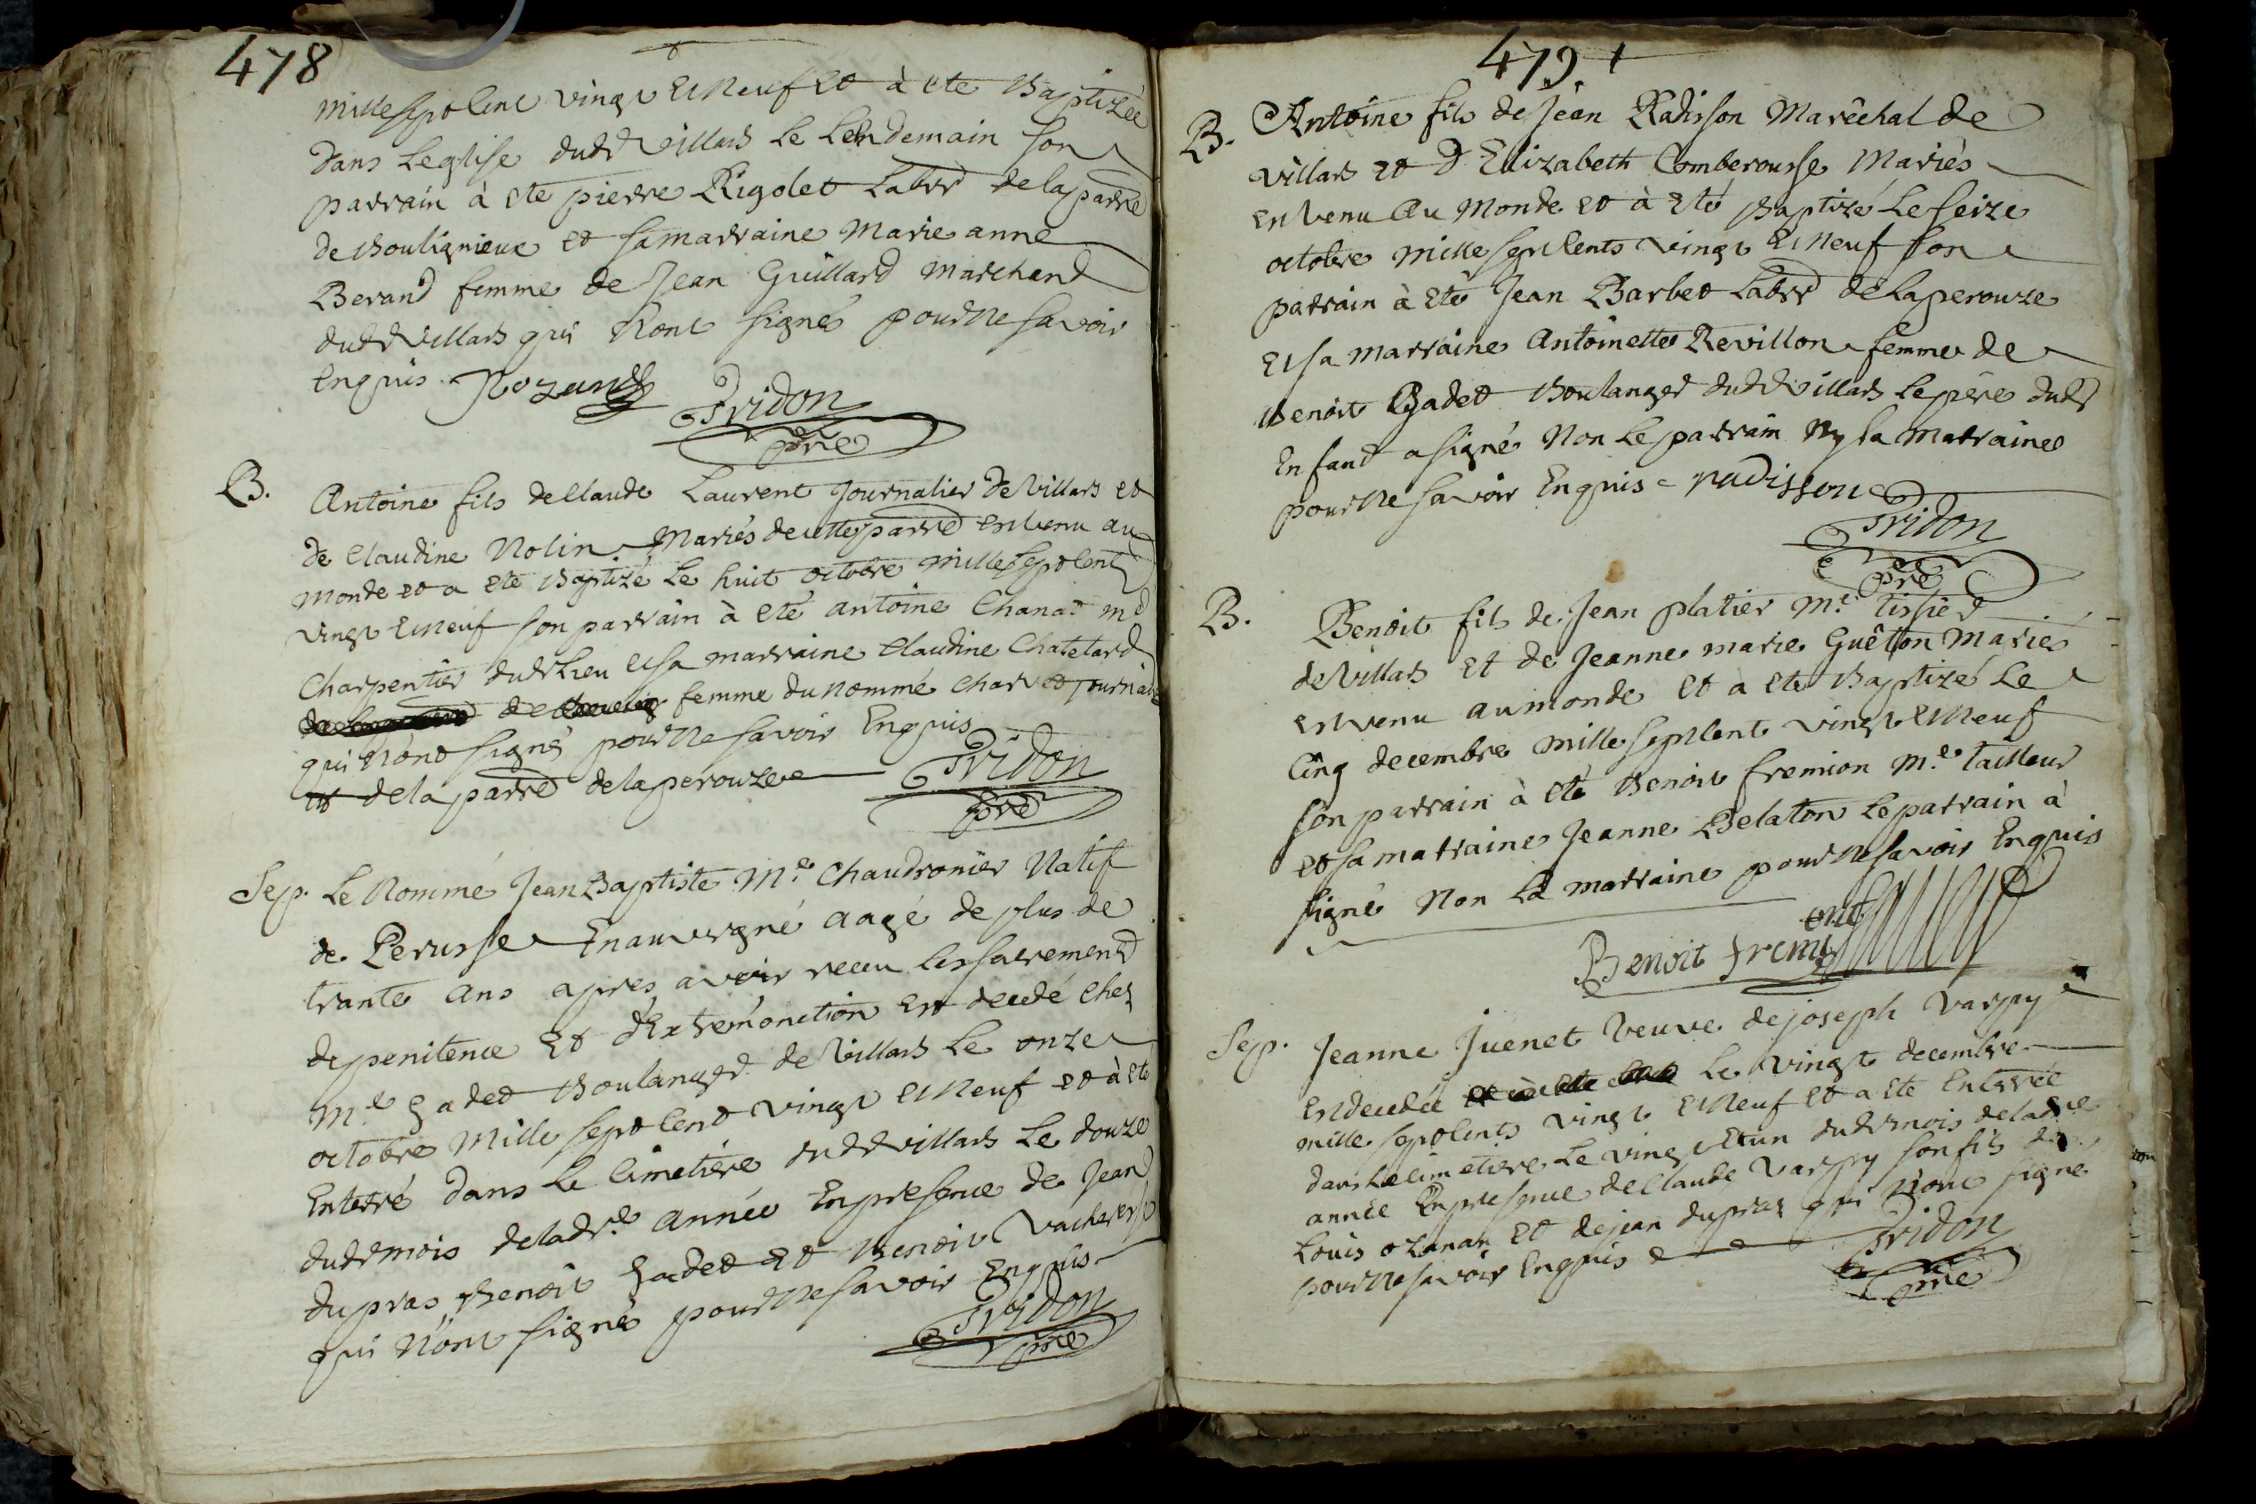 478
mille sept Cent vingt et Neuf et à ete Baptizée
Dans Leglise dudt Villars Le Lendemain son
parrain à ete pierre Rigolet Labrr de la parre
de Boulignieux et sa marraine Marie anne
Berand femme de Jean Guillard marchand
dudt villars qui N'ont signé pour Ne savoir
Enquis. Nozand
Pridon
pre
B. Antoine fils de Claude Laurent Journalier de Villars et
de Claudine Nolin Mariés de cette parre est venu au
Monde et a ete Baptizé Le huit octobre mille sept Cent
vingt et Neuf son parrain à eté antoine Chanat md
Charpentier dudt Lieu et sa marraine Claudine Chatelard
de femme du nommé charvet journalier
qui N'ont signé pour Ne savoir Enquis
de la parre de laperouze Pridon
pre
Sep. Le Nommé Jean Baptiste Me Chaudronier Natif
de Perusse En auvergne aagé de plus de
trante ans apres avoir receu Les sacrements
de penitence et d'Extremonction est decedé chez
Me gadet Boulanger de Villars Le onze
octobre Mille sept Cent vingt et Neuf et à ete
Enterré dans Le Cimetiere dudt villars Le douze
dudt mois de ladte année En presence de Jean
dupras Benoit gadet et Benoit Vacheresse
qui N'ont signé pour Ne savoir Enquis
Pridon
pre
479. +
B. Antoine fils de Jean Radisson Marêchal de
villars et d'Elizabeth Comberousse Mariés
est venu Au Monde et à Eté Baptizé Le seize
octobre mille sept Cents vingt et Neuf son
parrain à Eté Jean Barbet Labrr de Laperouze
et sa Marraine Antoinette Revillon femme de
Benoit Gadet Boulanger dudt Villars Le père dudt
Enfant a signé Non Le parrain Ny la Marraine
pour Ne savoir Enquis radisson
Pridon
pre
B. Benoit fils de Jean platier Me Tissier
de Villars et de Jeanne marie Guêtton Mariés
est venu au monde et a ete Baptizé Le
Cinq decembre mille sept Cent vingt et Neuf
son parrain à eté Benoit fremion Me Tailleur
et sa marraine Jeanne Belaton Le parrain à
signé Non La marraine pour Ne savoir Enquis
Benoit fremiont
Sep. Jeanne Juenet Veuve de joseph Varpy
est decedée Le vingt decembre
mille sept Cents vingt et Neuf et a ete Enterrée
dans Le cimetiere Le vingt et un dudt mois de ladte
année En presence de Claude Varpy son fils de
Louis ozanan et de jean dupraz qui N'ont signé
pour Ne savoir Enquis Pridon
pre